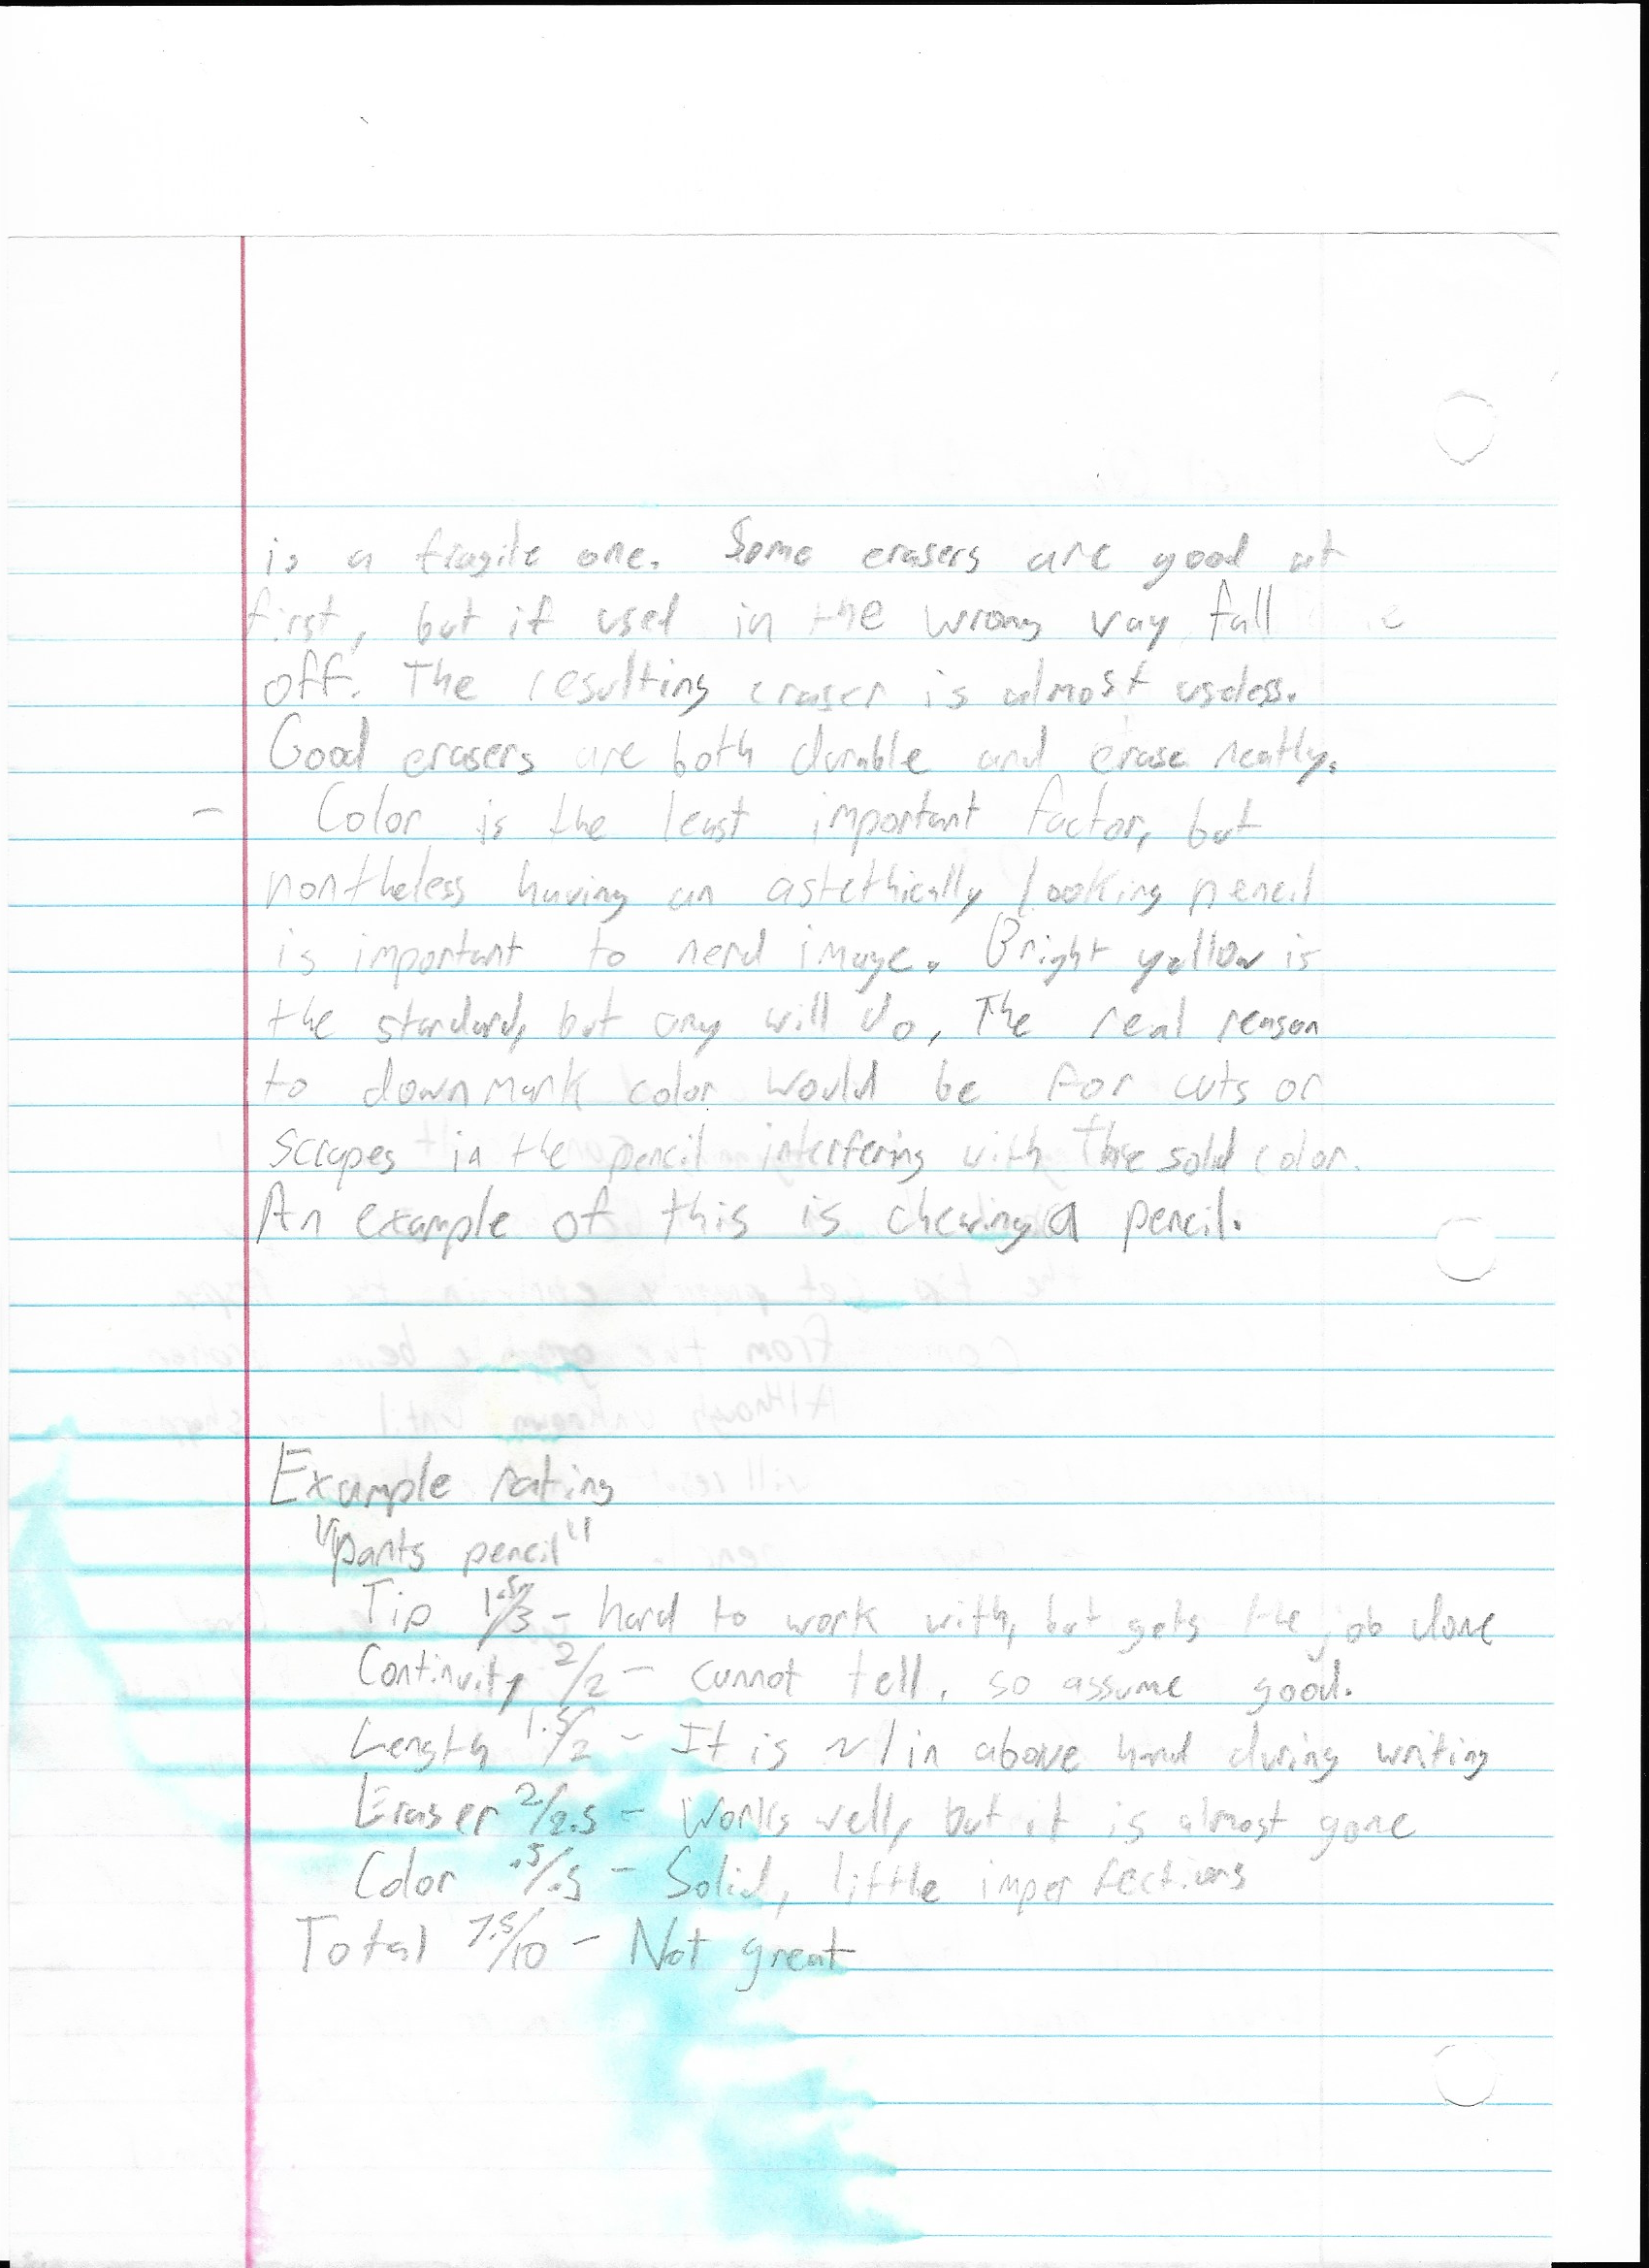 is a fragile one. Some erasers are good at
first, but if used in the wrong vay fall
off. The resulting eraser is almost useless.
Good erasers are both durable and erase neatly.
- Color is the least important factor, but
nontheless having an astethically looking pencil
is important to nerd image. Bright yellow is
the standard, but any will do. The real reason
to downmark color would be for cuts or
scrapes in the pencil interfering with the sold color.
An example of this is chewing a pencil.
Example rating
"pants pencil"
Tip 1.5/3 - hard to work with, but gets the job done
Continuity 2/2 - cannot tell, so assume good.
Length 1.5/2 - It is ~1in above hand during writing
Eraser 2/2.5 - Works well, but it is almost gone
Color .5/.5 - Solid, little imperfections
Total 7.5/10 - Not great